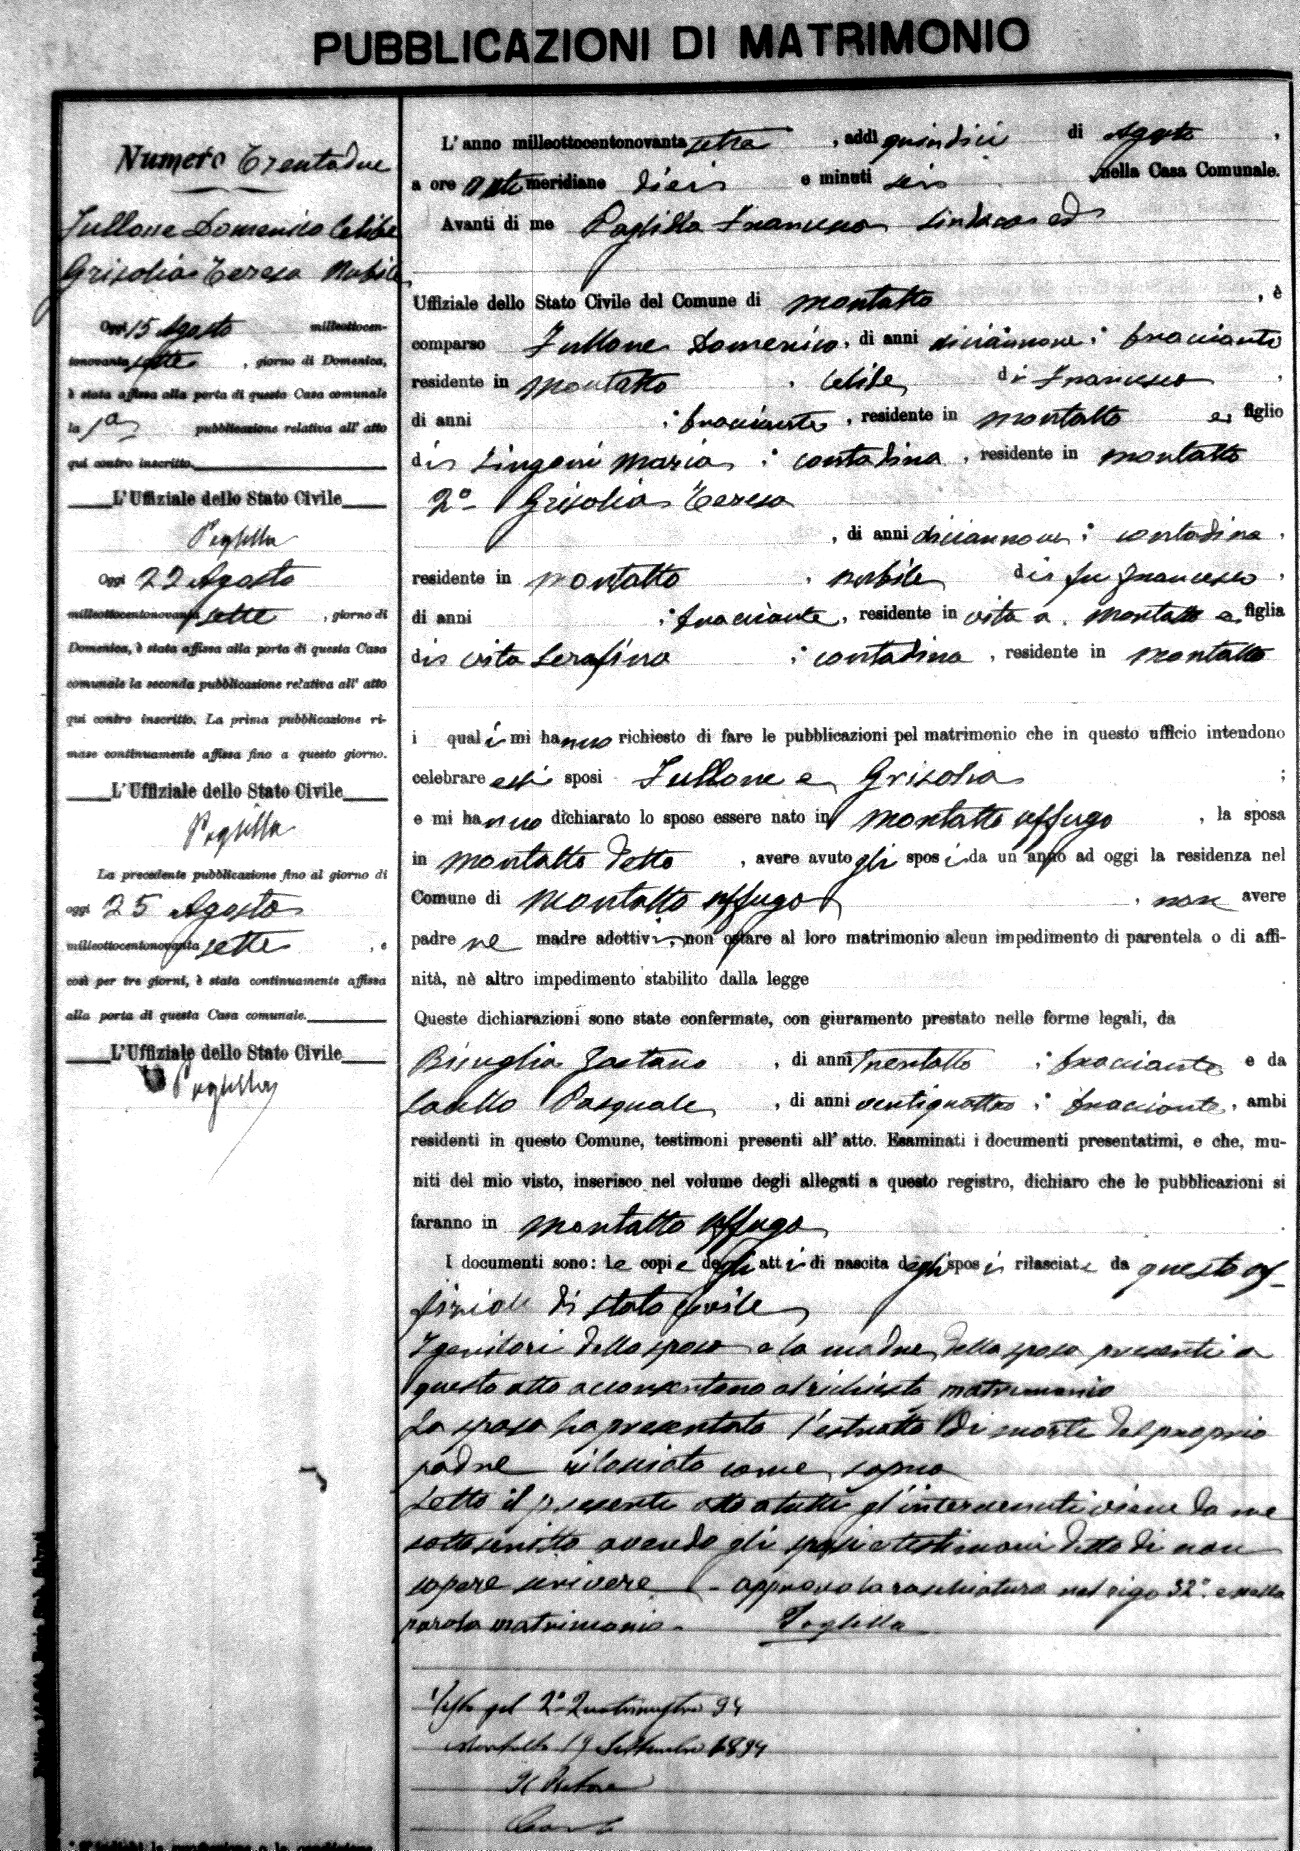 PUBBLICAZIONI DI MATRIMONIO
Numero Trentadue
Fullone Domenico Celibe
Grisolia Teresa Nubile
Oggi 15 Agosto milleottocen-
tonovanta sette, giorno di Domenica,
è stata affissa alla porta di questa Casa comunale
la 1a pubblicazione relativa all' atto
qui contro inscritto.
L'Uffiziale dello Stato Civile
Paglilla
Oggi 22 Agosto
milleottocentonovanta sette, giorno di
Domenica, è stata affissa alla porta di questa Casa
comunale la seconda pubblicazione relativa all' atto
qui contro inscritto. La prima pubblicazione ri-
mase continuamente affissa fino a questo giorno.
L'Uffiziale dello Stato Civile
Paglilla
La precedente pubblicazione fino al giorno di
oggi 25 Agosto
milleottocentonovanta sette, e
così per tre giorni, è stata continuamente affissa
alla porta di questa Casa comunale.
L'Uffiziale dello Stato Civile
Paglilla
L'anno milleottocentonovanta sette, addì quindici di Agosto,
a ore antemeridiane dieci e minuti sei, nella Casa Comunale.
Avanti di me Paglilla Francesco Sindaco ed
Uffiziale dello Stato Civile del Comune di Montalto, è
comparso Fullone Domenico, di anni diciannove; bracciante
residente in Montalto, Celibe, di Francesco,
di anni ; bracciante, residente in Montalto e, figlio
di Lingoni Maria; contadina, residente in Montalto
2° Grisolia Teresa
, di anni diciannove; contadina,
residente in Montalto, nubile, di fu Francesco,
di anni ; bracciante, residente in vita a Montalto e, figlia
di Vita Serafina ; contadina, residente in Montalto
i quali mi hanno richiesto di fare le pubblicazioni pel matrimonio che in questo ufficio intendono
celebrare essi sposi Fullone e Grisolia ;
e mi hanno dichiarato lo sposo essere nato in Montalto Uffugo, la sposa
in Montalto detto, avere avuto gli sposi da un anno ad oggi la residenza nel
Comune di Montalto Uffugo, non avere
padre ne madre adottivi, non ostare al loro matrimonio alcun impedimento di parentela o di affi-
nità, nè altro impedimento stabilito dalla legge
Queste dichiarazioni sono state confermate, con giuramento prestato nelle forme legali, da
Bisuglia Gaetano, di anni trentotto; bracciante e da
Pasquale, di anni ventiquattro; bracciante, ambi
residenti in questo Comune, testimoni presenti all' atto. Esaminati i documenti presentatimi, e che, mu-
niti del mio visto, inserisco nel volume degli allegati a questo registro, dichiaro che le pubblicazioni si
faranno in Montalto Uffugo
I documenti sono: le copie degli atti di nascita degli sposi rilasciate da questo uf-
fiziale di stato civile
I genitori dello sposo e la madre della sposa presenti a
questo atto acconsentono al richiesto matrimonio
La sposa ha presentato l'estratto di morte del proprio
padre rilasciato come sopra
Letto il presente atto a tutti gl'intervenuti viene da me
sottoscritto avendo gli sposi e testimoni detto di non
sapere scrivere - approvo la raschiatura nel rigo 32° e nella
parola matrimonio. Paglilla
Visto pel 2° Quadrimestre 97
Montalto 19 Settembre 1897
Il Pretore